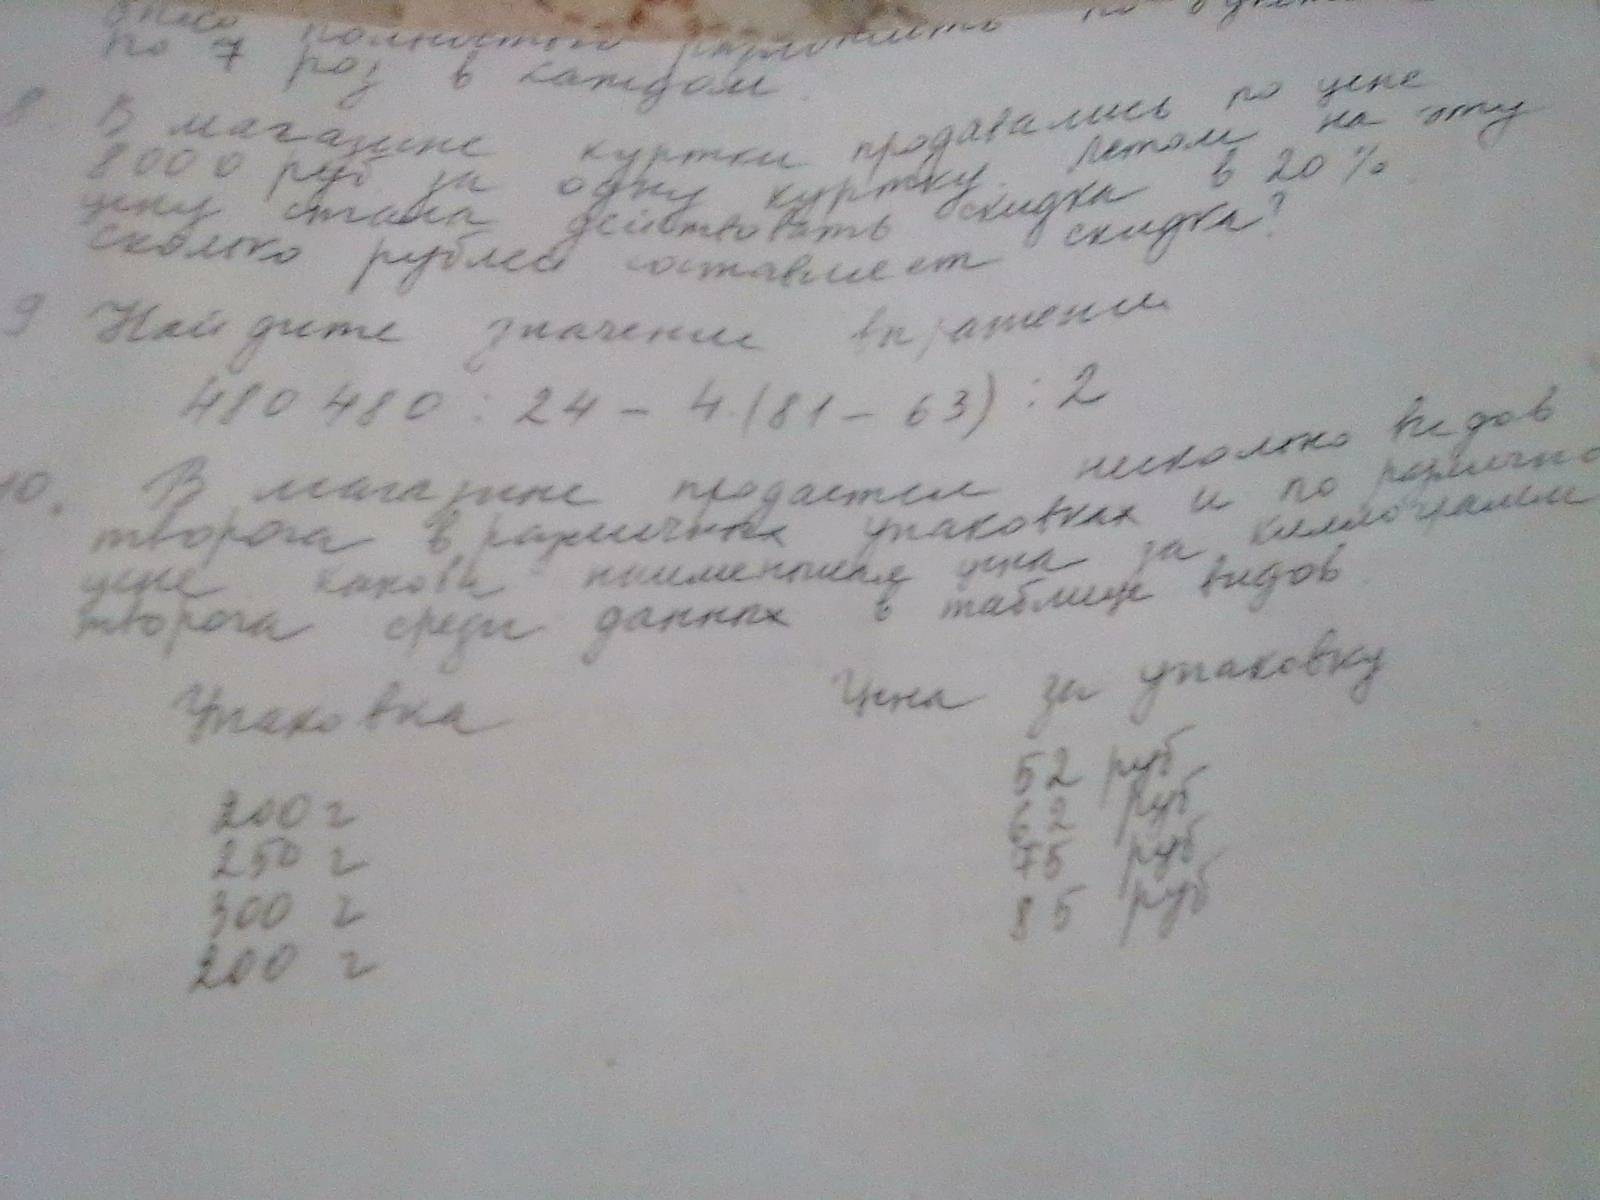 было полностью разложить по
по 7 роз в каждом.
8. В магазине куртки продавались по цене
8000 руб за одну куртку. Летом на эту
цену стала действовать скидка в 20%.
сколько рублей составляет скидка?
9 Найдите значение выражения
480 480 : 24 - 4.(81 - 63) : 2
10. В магазине продается несколько видов
творога в различных упаковках и по различно
цене какова наименьшая цена за киллограмм
творога среди данных в таблице видов
Упаковка Цена за упаковку
200 г 52 руб
250 г 62 руб
300 г 75 руб
200 г 85 руб